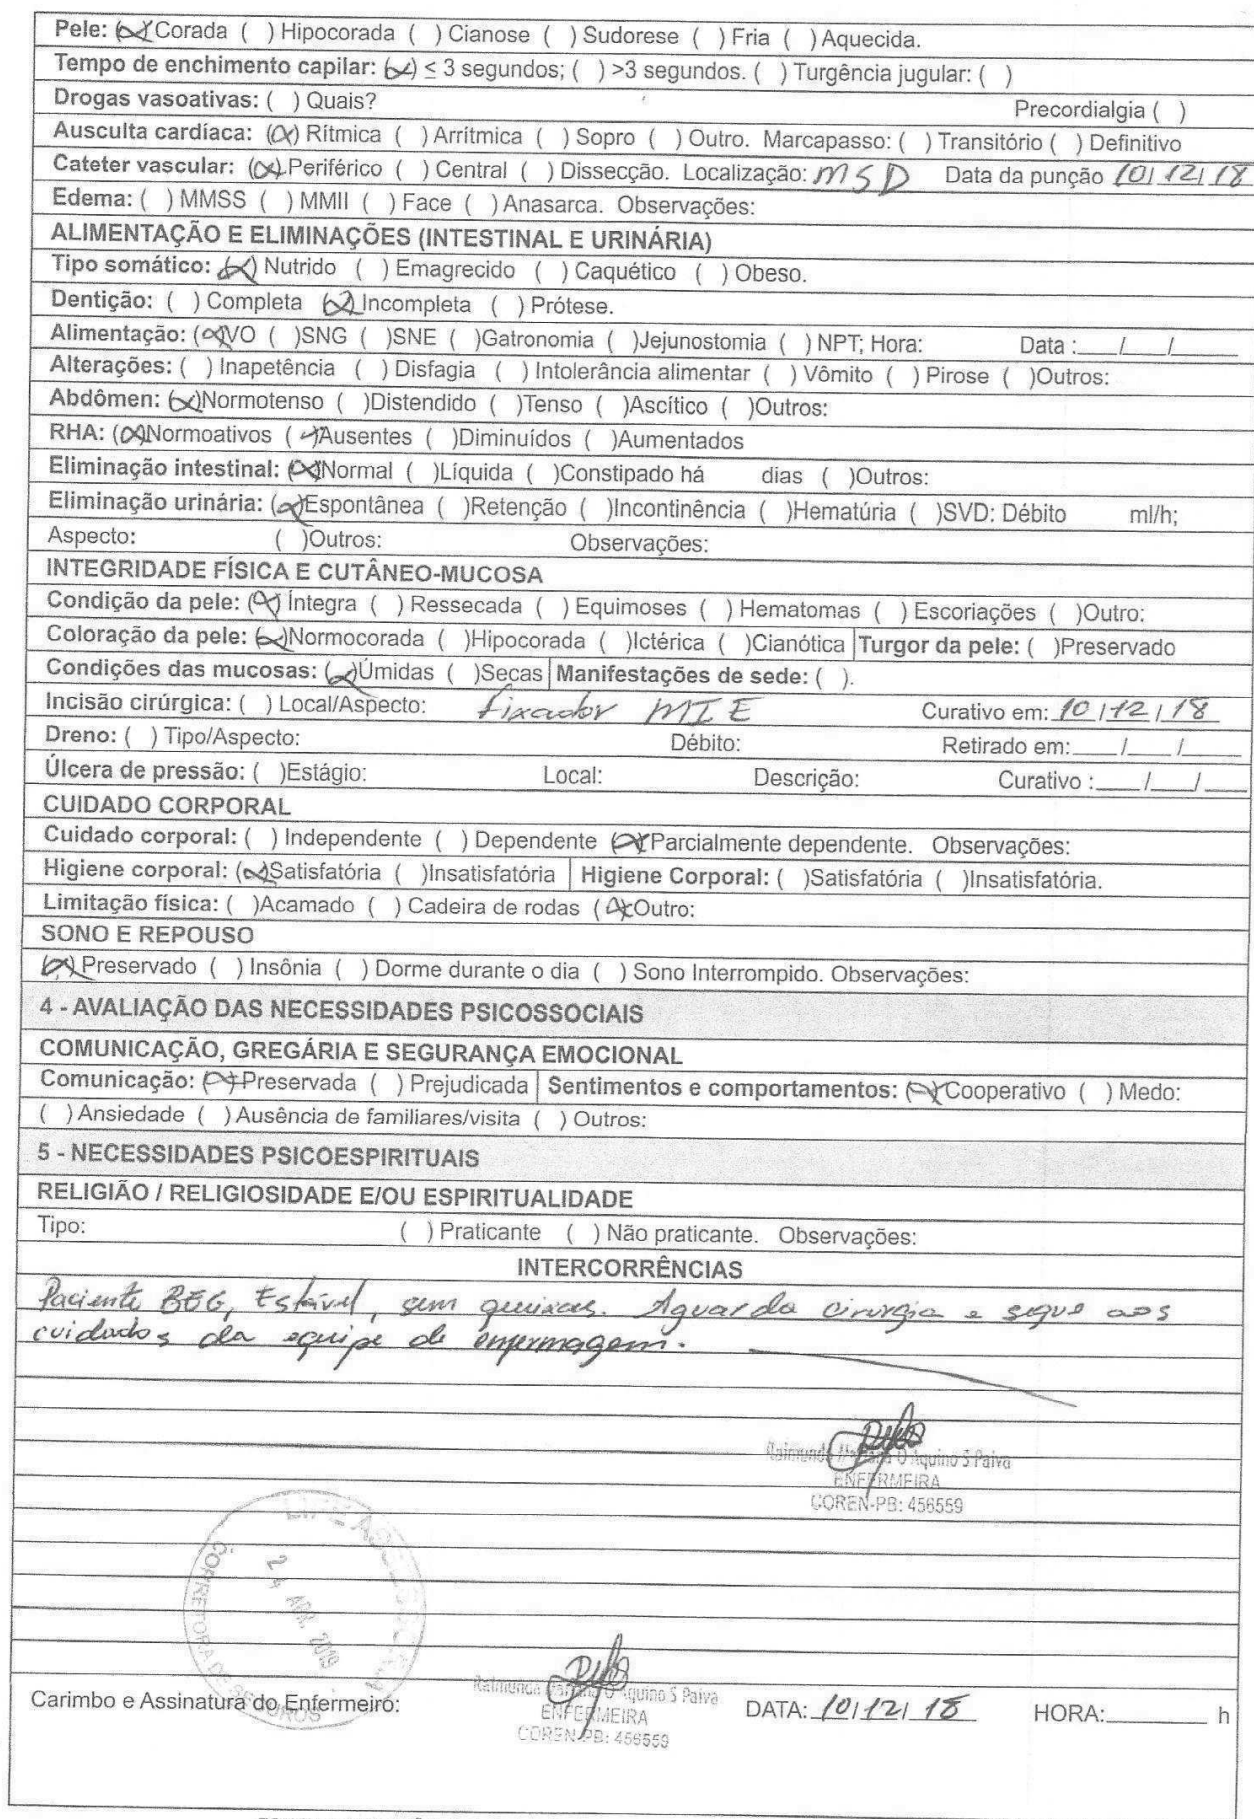 Pele: (x) Corada ( ) Hipocorada ( ) Cianose ( ) Sudorese ( ) Fria ( ) Aquecida.
Tempo de enchimento capilar: (x) ≤ 3 segundos; ( ) >3 segundos. ( ) Turgência jugular: ( )
Drogas vasoativas: ( ) Quais? Precordialgia ( )
Ausculta cardíaca: (x) Rítmica ( ) Arrítmica ( ) Sopro ( ) Outro. Marcapasso: ( ) Transitório ( ) Definitivo
Cateter vascular: (x) Periférico ( ) Central ( ) Dissecção. Localização: MSD Data da punção 10/12/18
Edema: ( ) MMSS ( ) MMII ( ) Face ( ) Anasarca. Observações:
ALIMENTAÇÃO E ELIMINAÇÕES (INTESTINAL E URINÁRIA)
Tipo somático: (x) Nutrido ( ) Emagrecido ( ) Caquético ( ) Obeso.
Dentição: ( ) Completa (x) Incompleta ( ) Prótese.
Alimentação: (x)VO ( )SNG ( )SNE ( )Gatronomia ( )Jejunostomia ( ) NPT; Hora: Data :___/___/___
Alterações: ( ) Inapetência ( ) Disfagia ( ) Intolerância alimentar ( ) Vômito ( ) Pirose ( )Outros:
Abdômen: (x)Normotenso ( )Distendido ( )Tenso ( )Ascítico ( )Outros:
RHA: (x)Normoativos ( )Ausentes ( )Diminuídos ( )Aumentados
Eliminação intestinal: (x)Normal ( )Líquida ( )Constipado há dias ( )Outros:
Eliminação urinária: (x)Espontânea ( )Retenção ( )Incontinência ( )Hematúria ( )SVD: Débito ml/h;
Aspecto: ( )Outros: Observações:
INTEGRIDADE FÍSICA E CUTÂNEO-MUCOSA
Condição da pele: (x) Íntegra ( ) Ressecada ( ) Equimoses ( ) Hematomas ( ) Escoriações ( )Outro:
Coloração da pele: (x)Normocorada ( )Hipocorada ( )Ictérica ( )Cianótica Turgor da pele: ( )Preservado
Condições das mucosas: (x)Úmidas ( )Secas Manifestações de sede: ( ).
Incisão cirúrgica: ( ) Local/Aspecto: fixador MIE Curativo em: 10/12/18
Dreno: ( ) Tipo/Aspecto: Débito: Retirado em:___/___/___
Úlcera de pressão: ( )Estágio: Local: Descrição: Curativo :___/___/___
CUIDADO CORPORAL
Cuidado corporal: ( ) Independente ( ) Dependente (x) Parcialmente dependente. Observações:
Higiene corporal: (x)Satisfatória ( )Insatisfatória Higiene Corporal: ( )Satisfatória ( )Insatisfatória.
Limitação física: ( )Acamado ( ) Cadeira de rodas (x)Outro:
SONO E REPOUSO
(x) Preservado ( ) Insônia ( ) Dorme durante o dia ( ) Sono Interrompido. Observações:
4 - AVALIAÇÃO DAS NECESSIDADES PSICOSSOCIAIS
COMUNICAÇÃO, GREGÁRIA E SEGURANÇA EMOCIONAL
Comunicação: (x) Preservada ( ) Prejudicada Sentimentos e comportamentos: (x) Cooperativo ( ) Medo:
( ) Ansiedade ( ) Ausência de familiares/visita ( ) Outros:
5 - NECESSIDADES PSICOESPIRITUAIS
RELIGIÃO / RELIGIOSIDADE E/OU ESPIRITUALIDADE
Tipo: ( ) Praticante ( ) Não praticante. Observações:
INTERCORRÊNCIAS
Paciente BEG, Estável, sem queixas. Aguarda cirurgia e segue aos
cuidados da equipe de enfermagem.
Raimunda O Aquino S Paiva
ENFERMEIRA
COREN-PB: 456559
CORRETORA DE SEGUROS
24 ABR. 2019
Carimbo e Assinatura do Enfermeiro:
Raimunda O Aquino S Paiva
ENFERMEIRA
COREN-PB: 456559
DATA: 10/12/18 HORA:______ h